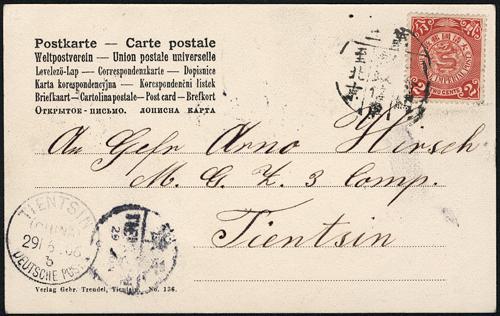 Postkarte — Carte postale
Weltpostverein — Union postale universelle
Levelező-Lap — Correspondenzkarte — Dopisnice
Karta korespondencyjna — Korespondenční lístek
Briefkaart — Cartolina postale — Post card — Brefkort
Открытое письмо.
IMPERIAL POST
2 TWO CENTS 2
An Gefr Arno Hirsch
M. G. Z. 3 Comp.
Tientsin
TIENTSIN
(CHINA)
29
DEUTSCHE POST
Verlag Gebr. Trendel, Tientsin. No. 136.